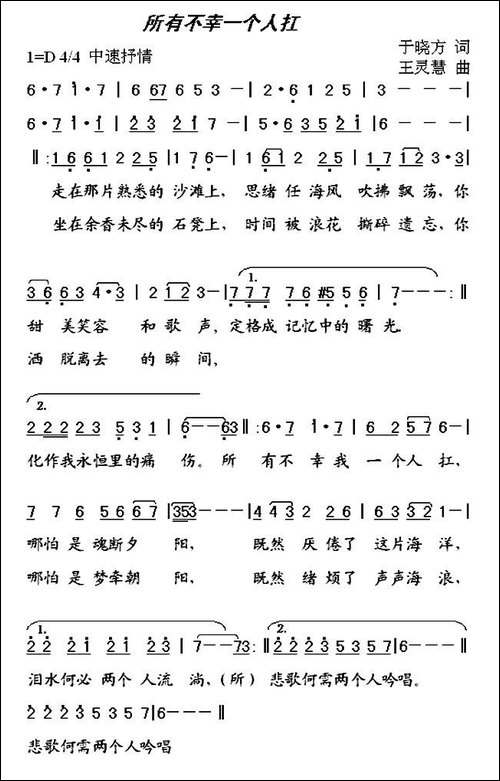 所有不幸一个人扛
1=D 4/4 中速抒情
于晓方 词
王灵慧 曲
6·7 i·7 | 6 67 6 5 3 – | 2·6 1 2 5 | 3 – – – |
6·7 i·7 | i 2 3 2 i 7 – | 5·6 3 5 2 i | 6 – – – |
‖: 1 6 6 1 2 2 5 | 1 7 6 – | 1 6 1 2 2 5 | 1 7 1 2 3·3 |
走在那片熟悉的 沙滩上, 思绪 任 海风 吹拂 飘 荡, 你
坐在余香未尽的 石凳上, 时间 被 浪花 撕碎 遗 忘, 你
1.
3 6 6 3 4·3 | 2 1 2 3 – | 7 7 7 7 6 #5 5 6 | 7 – – – :‖
甜 美笑容 和 歌 声, 定格成 记忆中的 曙 光.
洒 脱离去 的 瞬 间,
2.
2 2 2 2 3 5 3 1 | 6 – – 6 3 ‖: 6·7 i·7 | 6 2 5 7 6 – |
化作我永恒里的痛 伤。所 有不 幸 我 一 个人 扛,
7 7 6 5 6 6 7 | 3 5 3 – – – | 4 4 3 2 2 6 | 6 3 3 2 1 – |
哪怕 是 魂断夕 阳, 既然 厌 倦了 这片海 洋,
哪怕 是 梦牵朝 阳, 既然 绪 烦了 声声海 浪,
1.
2.
2 2 2 i 2 i 2 3 | 7 – – 7 3 :‖ 2 2 2 2 3 5 3 5 7 | 6 – – – ‖
泪水何必 两个 人流 淌、(所) 悲歌何需两个人吟唱。
2 2 2 2 3 5 3 5 7 | 6 – – – ‖
悲歌何需两个人吟唱